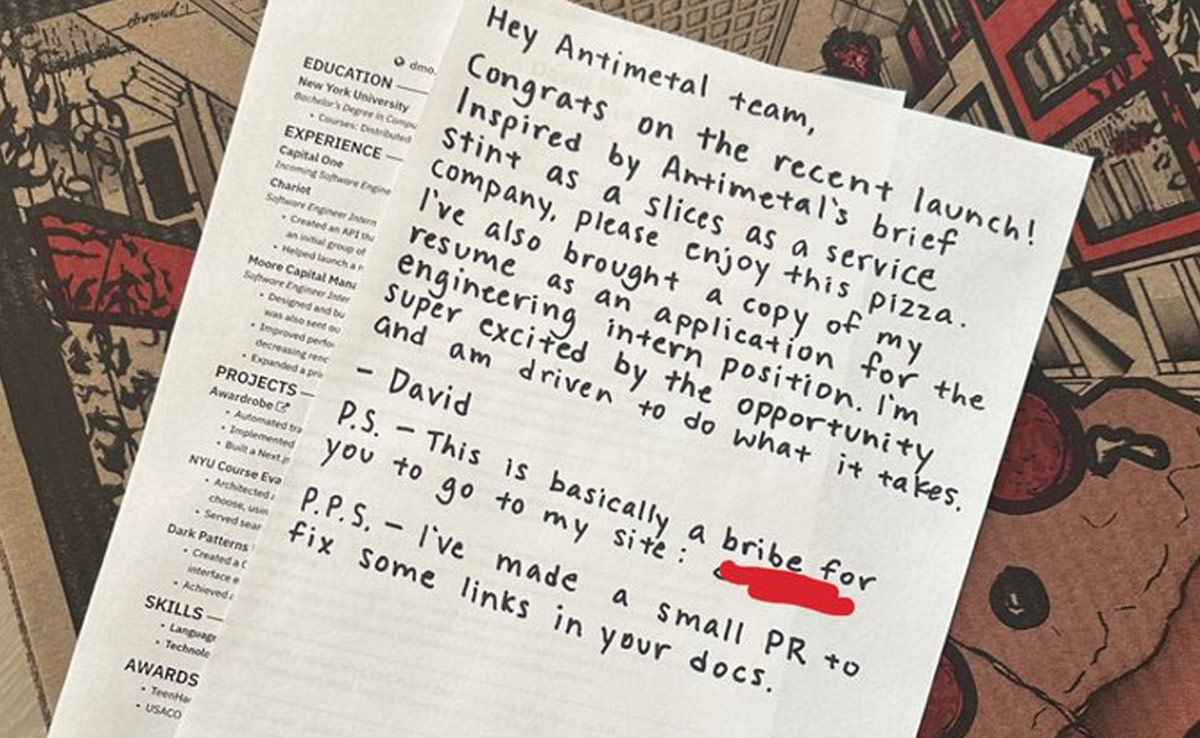 Hey Antimetal team,
Congrats on the recent launch!
Inspired by Antimetal's brief
stint as a slices as a service
company, please enjoy this pizza.
I've also brought a copy of my
resume as an application for the
engineering intern position. I'm
super excited by the opportunity
and am driven to do what it takes.
- David
P.S. - This is basically a bribe for
you to go to my site:
P.P.S. - I've made a small PR to
fix some links in your docs.
EDUCATION
New York University
Bachelor's Degree in
• Courses: Distributed
EXPERIENCE
Capital One
Incoming Software
Chariot
Software Engineer Intern
• Created an API
an initial group of
• Helped launch a
Moore Capital
Software Engineer
• Designed and
was also sent
• Improved
decreasing
• Expanded a
PROJECTS
Awardrobe
• Automated
• Implemented
• Built a
NYU Course
• Architected
choose,
• Served
Dark Patterns
• Created a
interface
• Achieved
SKILLS
•
•
AWARDS
•
• USACO